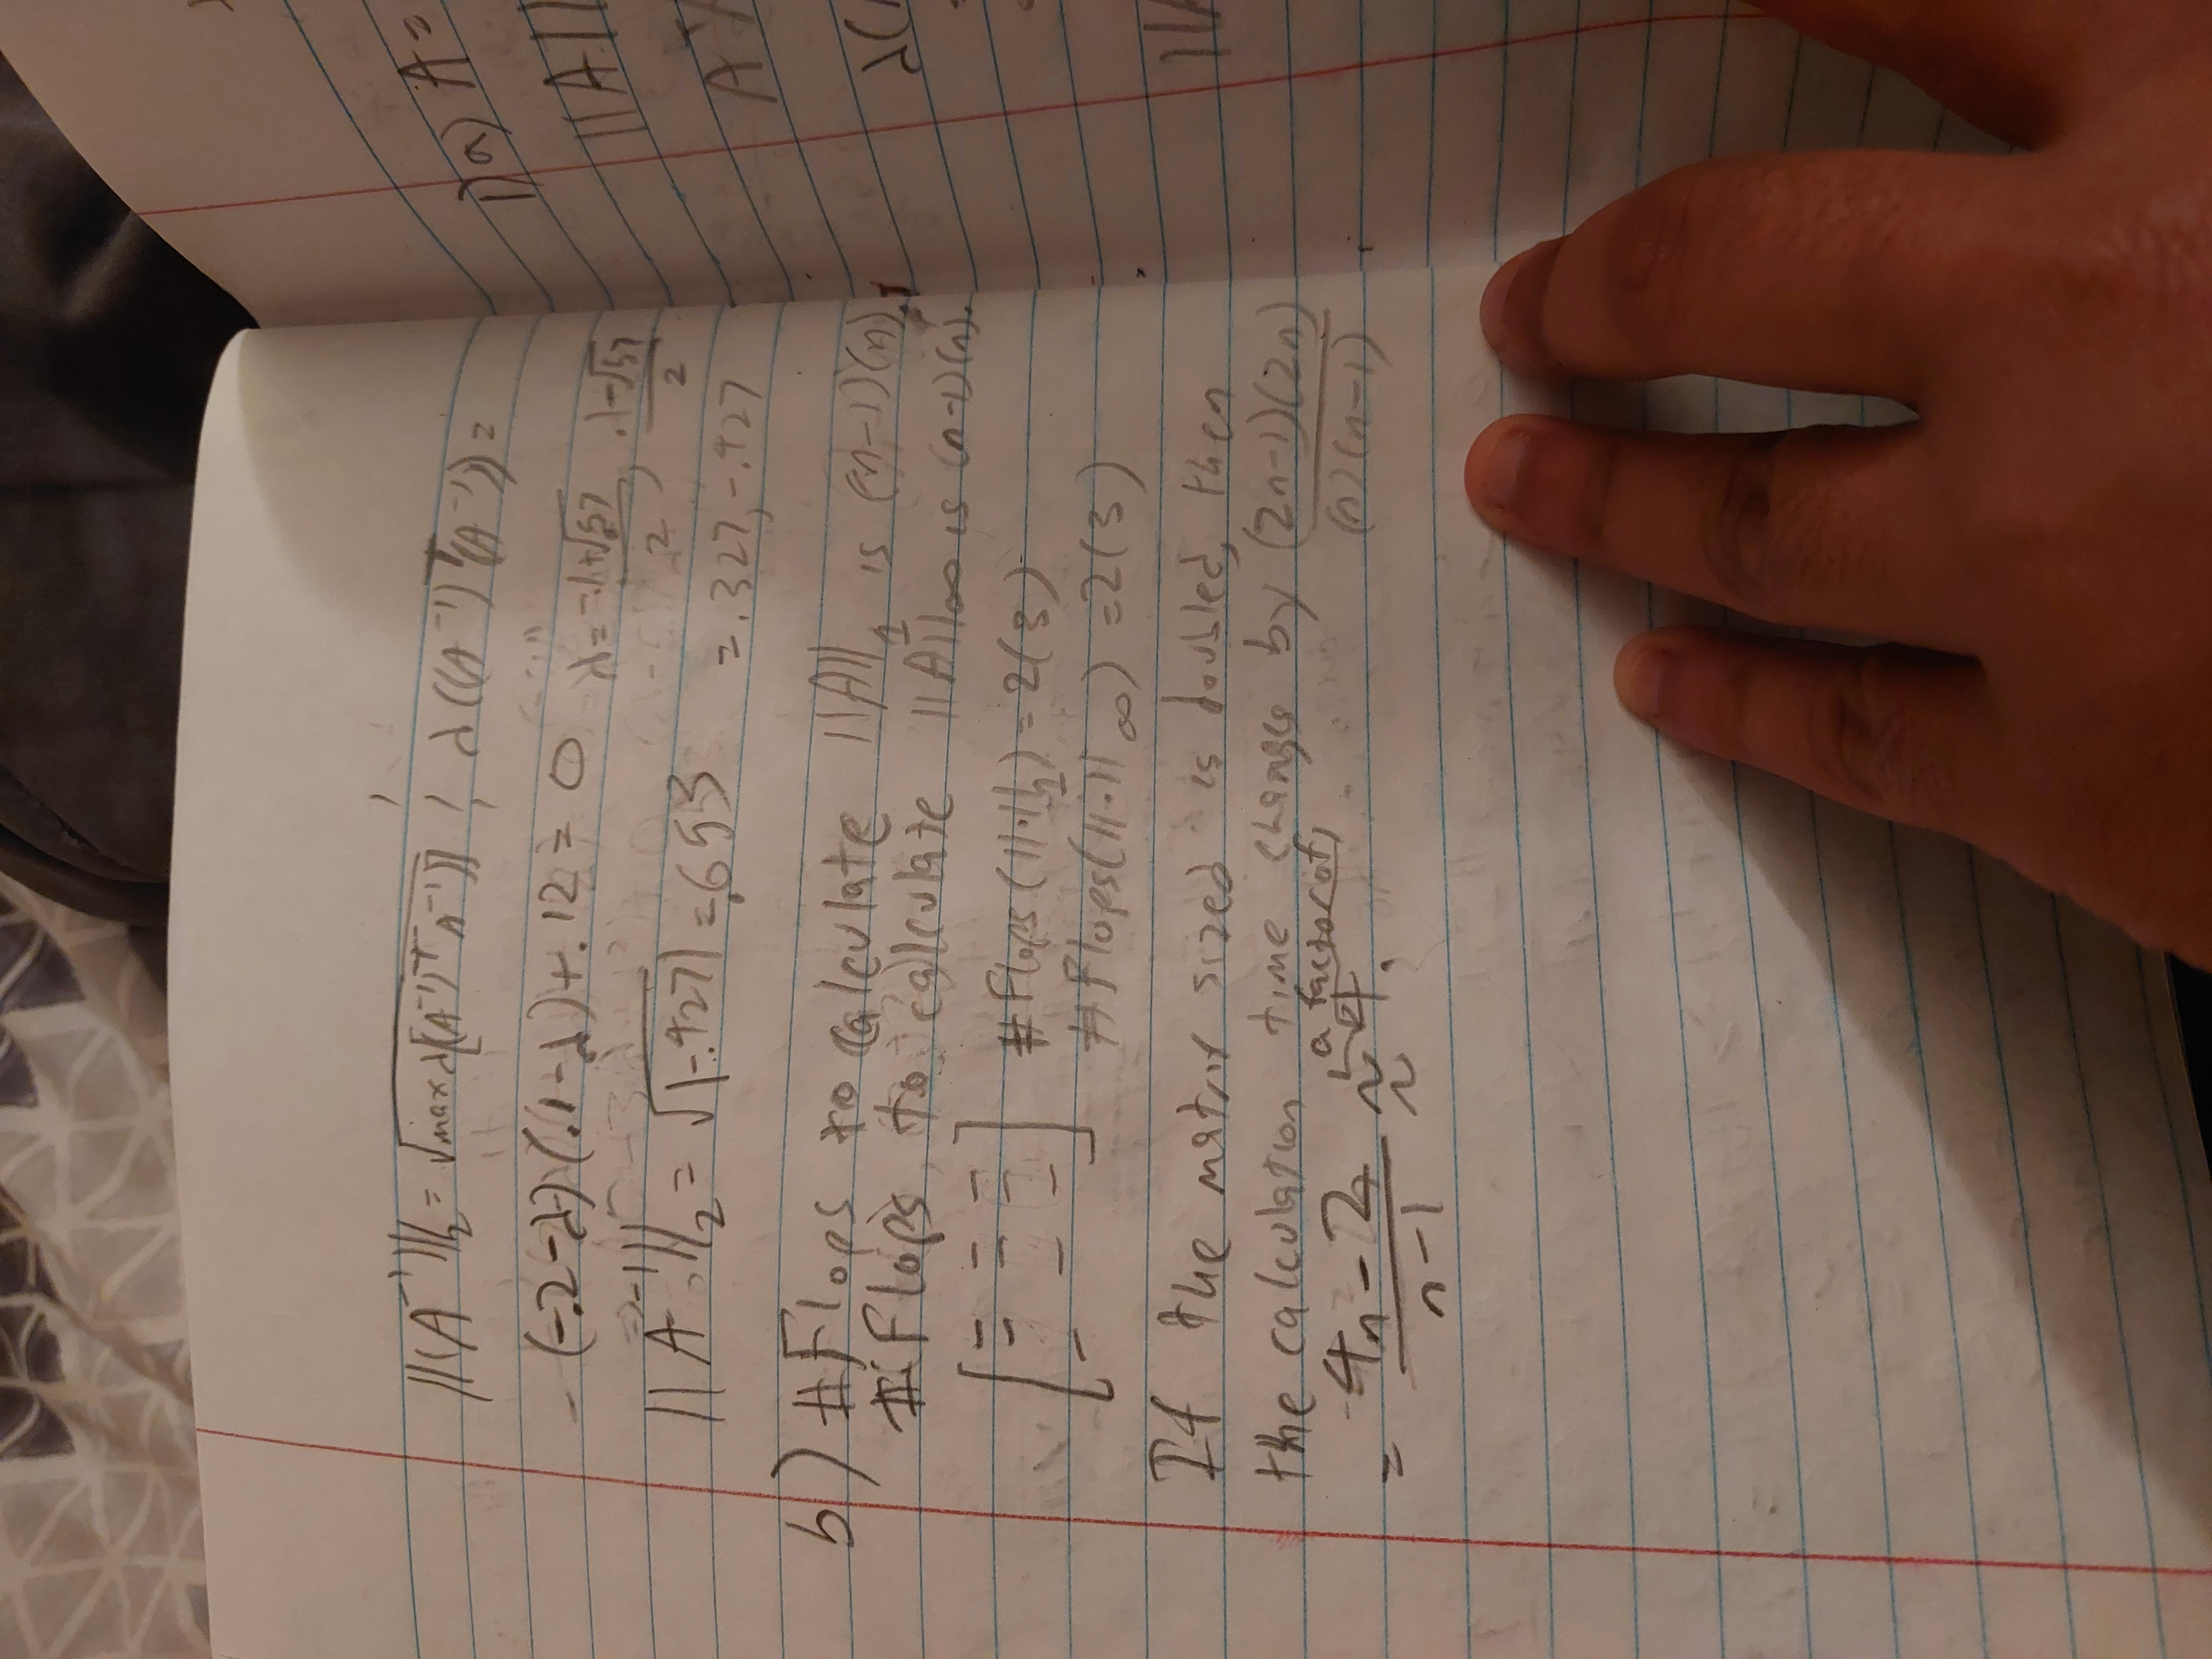 ||(A⁻¹)||₂ = √max λ[(A⁻¹)ᵀ A⁻¹)] ¦ λ((A⁻¹)ᵀ(A⁻¹)) =
- (-.2-λ)(.1-λ)+.12 = 0 λ = -.1+√.57/2, .1-√57/2
||A⁻¹||₂ = √|-.427| = .653 = .327, -.427
b) #Flops to calculate ||A||₁ is (n-1)(n).
#Flops to calculate ||A||∞ is (n-1)(n).
#Flops(||·||₁) = 2(3)
#Flops(||·||∞) = 2(3)
If the matrix sized is doubled, then
the calculation time change by (2n-1)(2n)/(n)(n-1)
a factor of
= 4n-2/n-1 ≈ 4.
1)a) A =
||A||
λ(